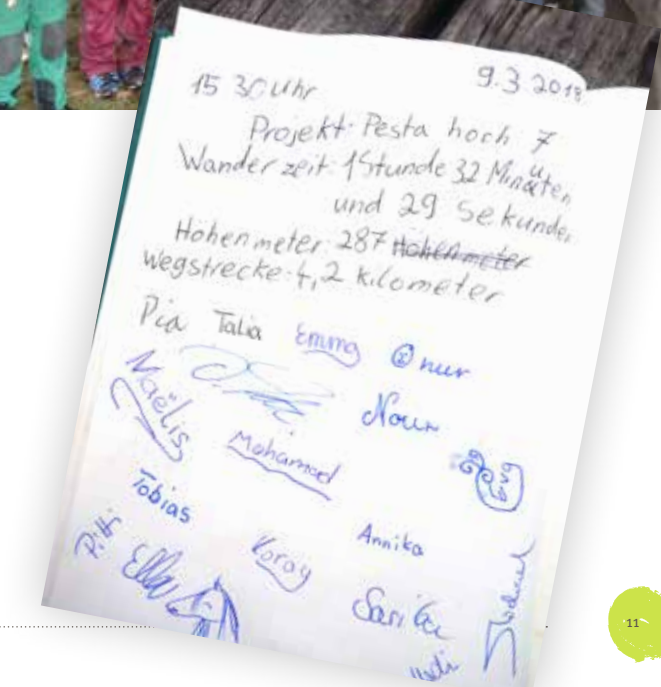 9.3.2018
15 30 Uhr
Projekt: Pesta hoch 7
Wanderzeit: 1 Stunde 32 Minuten
und 29 Sekunden
Höhenmeter: 287 Höhenmeter
Wegstrecke: 4,2 kilometer
Pia Talia Emma Onur
Maëlis Nour
Mohamad
Tobias Annika
Ella Koray
11